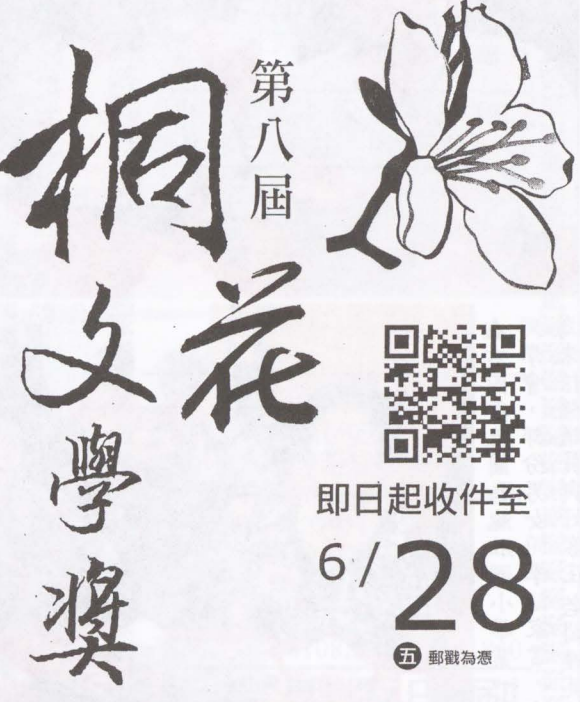 第八屆
桐花
文學獎
即日起收件至
6/28
五 郵戳為憑